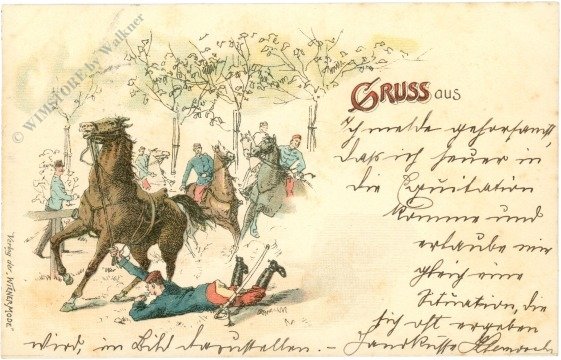 © WIMSTORE by Walkner
GRUSS aus
Ich melde gehorsamst,
dass ich heuer in
die Equitation
komme und
erlaube mir
gleich eine
Situation, die
sich oft ergeben
wird, im Bild darzustellen. – Handküsse
"Verlag der „WIENER MODE"